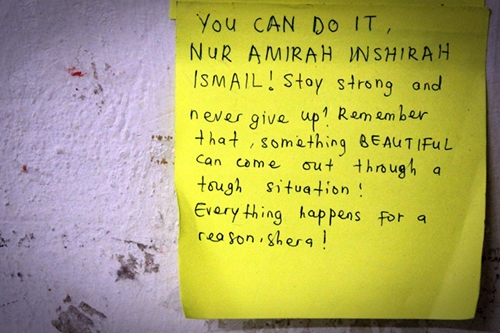 YOU CAN DO IT,
NUR AMIRAH INSHIRAH
ISMAIL! Stay strong and
never give up! Remember
that, something BEAUTIFUL
can come out through a
tough situation!
Everything happens for a
reason, shera!